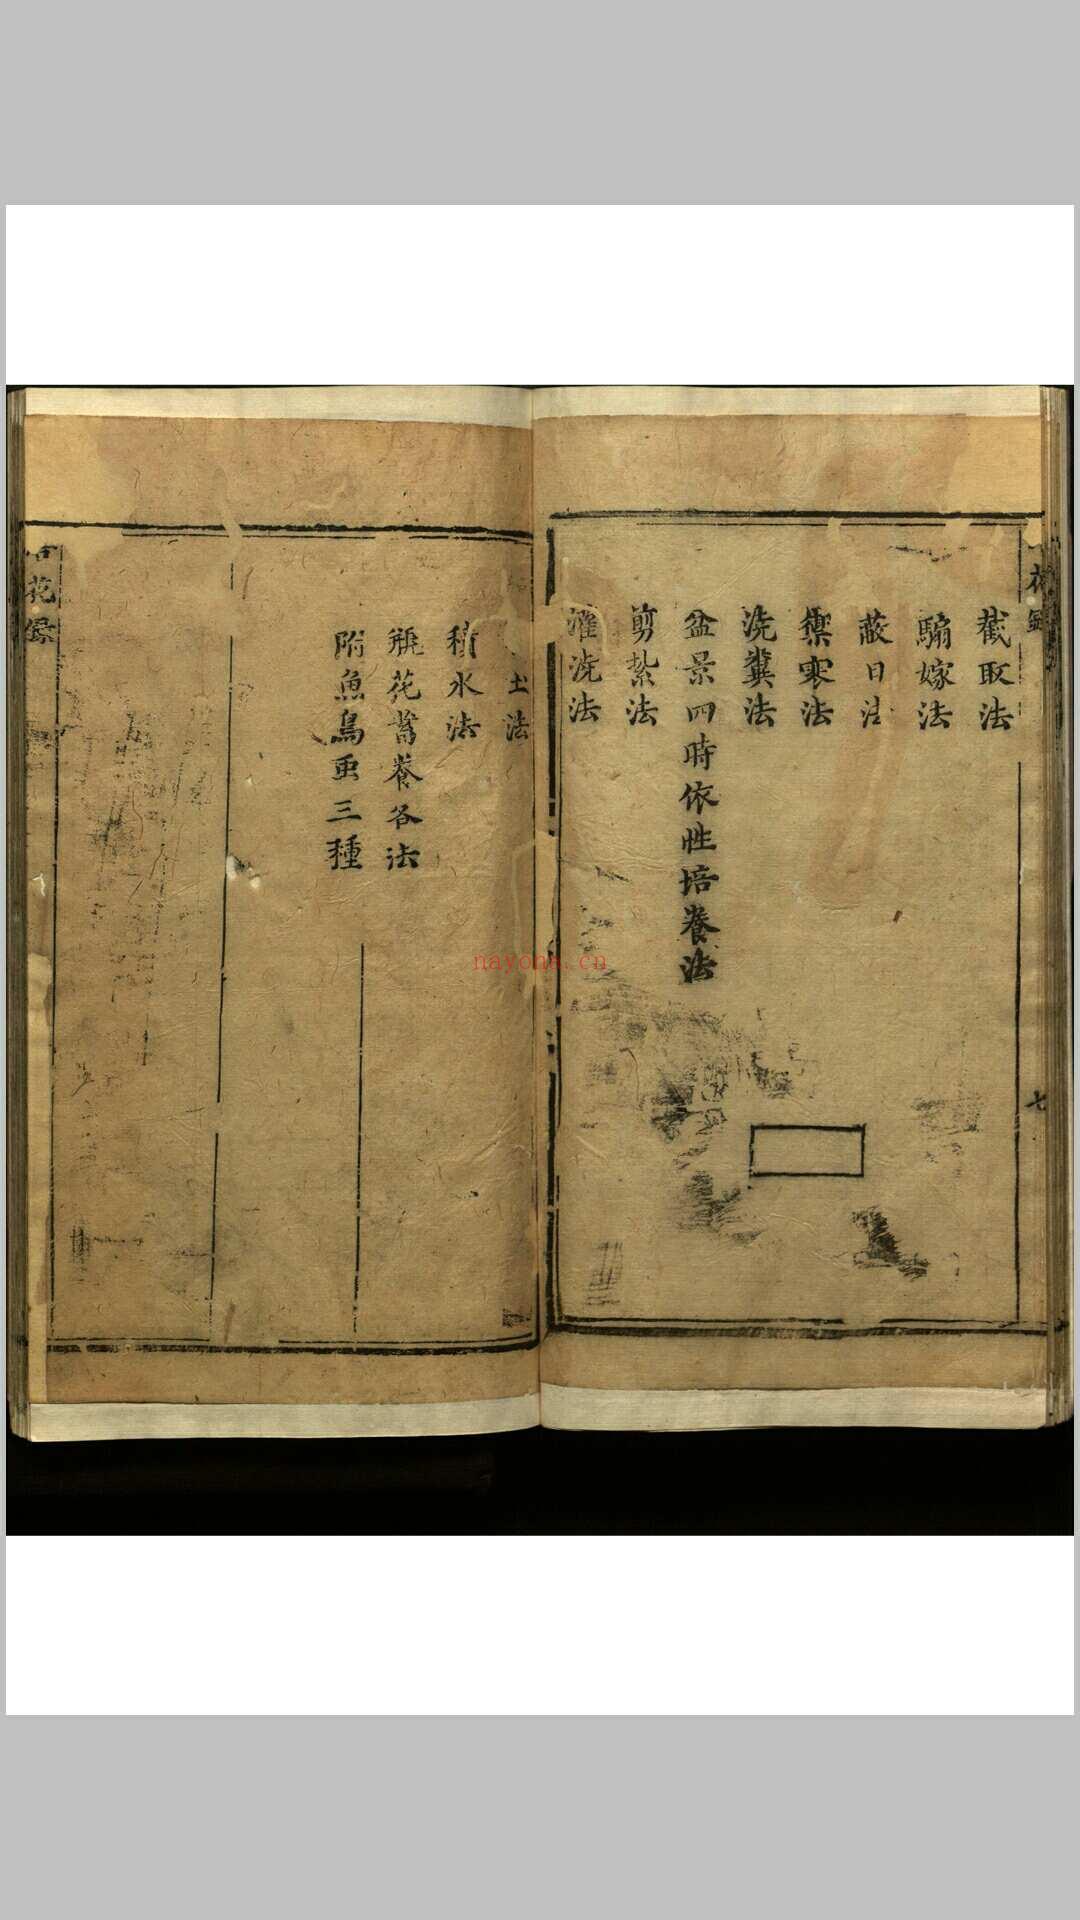 花
七
截取法
騸嫁法
蔽日法
禦寒法
洗糞法
盆景四時依性培養法
剪紮法
灌洗法
土法
積水法
瓶花蓄養各法
附魚鳥虫三種
花錄
nayona.cn